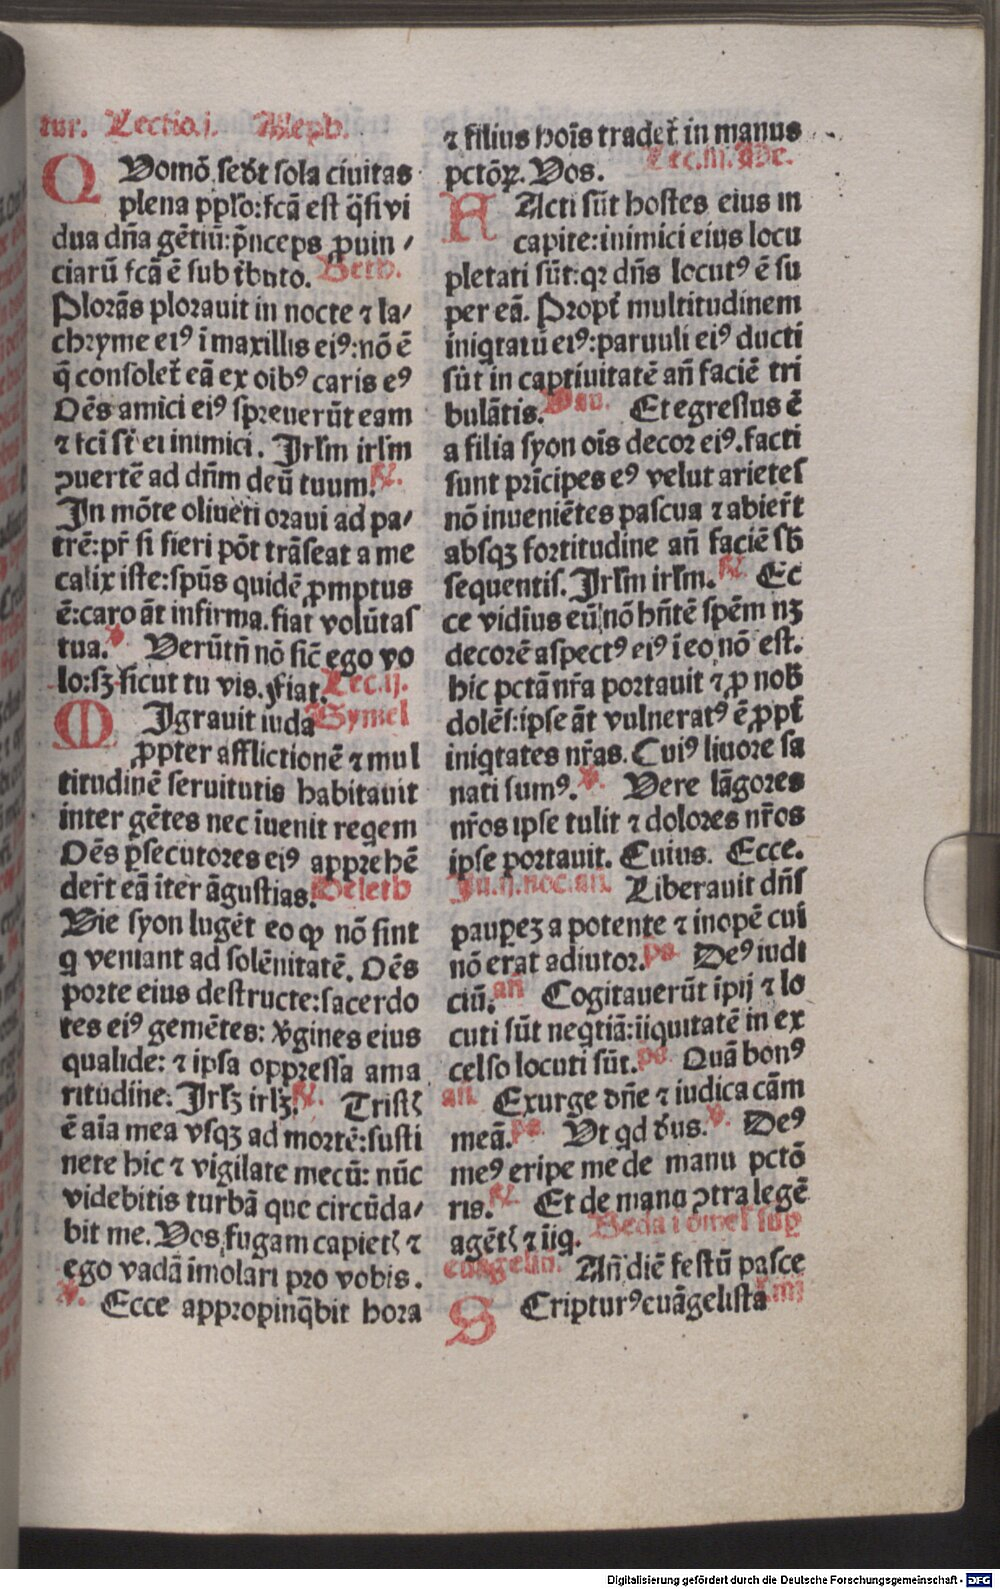 tur. Lectio.i. Aleph.
Q Uomō sedꝫt sola ciuitas
plena ppl'o:fc̄a est q̄si vi
dua dn̄a gētiū:p̄nceps ꝓuin⸗
ciarū fc̄a ē sub t̓buto. Beth.
Plorās plorauit in nocte ⁊ la⸗
chryme eiꝰ ī maxillis eiꝰ:nō ē
q̄ consolet̄ eā ex oibꝰ caris eꝰ
Oēs amici eiꝰ spreuerūt eam
⁊ fc̄i st̄ ei inimici. Irl'm irl'm
ꝯuertē ad dn̄m deū tuum. ℟.
In mōte oliueti oraui ad pa⸗
trē:pr̄ si fieri pōt trāseat a me
calix iste:spūs quidē ꝓmptus
ē:caro āt infirma.fiat volūtas
tua. ℣. Verūtn̄ nō sic̄ ego vo
lo:sꝫ sicut tu vis. Fiat. Lec.ij.
M Igrauit iuda Gymel
ꝓpter afflictionē ⁊ mul
titudinē seruitutis habitauit
inter gētes nec īuenit reqem
Oēs ꝑsecutores eiꝰ apprehē
der̄t eā īter āgustias. Deleth
Vie syon lugēt eo ꝙ nō sint
q veniant ad solēnitatē. Oēs
porte eius destructe:sacerdo
tes eiꝰ gemētes: v̓gines eius
qualide: ⁊ ipsa oppressa ama
ritudine. Irl'ꝫ irl'ꝫ. ℟. Tristꝭ
ē aīa mea vsqꝫ ad mortē:susti
nete hic ⁊ vigilate mecū: nūc
videbitis turbā que circūda⸗
bit me. Vos fugam capietꝭ ⁊
ego vadā īmolari pro vobis.
℣. Ecce appropinq̄bit hora
⁊ filius hoīs tradet̄ in manus
pctōꝝ. Vos. Lec.iij. He.
F Acti sūt hostes eius in
capite:inimici eius locu
pletati sūt:qꝛ dn̄s locutꝰ ē su
per eā. Propt̄ multitudinem
iniqtatū eiꝰ:paruuli eiꝰ ducti
sūt in captiuitatē an̄ faciē tri
bulātis. Uau. Et egressus ē
a filia syon oīs decor eiꝰ.facti
sunt prīcipes eꝰ velut arietes
nō inueniētes pascua ⁊ abier̄t
absqꝫ fortitudine an̄ faciē sb̄
sequentis. Irl'm irl'm. ℟. Ec
ce vidīus eū nō hn̄tē spēm nꝫ
decorē aspectꝰ eiꝰ ī eo nō est.
hic pctā nr̄a portauit ⁊ ꝓ nob̄
dolēs:ipse āt vulneratꝰ ē ꝓpt̄
iniqtates nr̄as. Cuiꝰ liuore sa
nati sumꝰ. ℣. Vere lāgores
nr̄os ipse tulit ⁊ dolores nr̄os
ipse portauit. Cuius. Ecce.
In.ij.noc.an. Liberauit dn̄s
pauꝑeꝫ a potente ⁊ inopē cui
nō erat adiutor. ps. Deꝰ iudi
ciū. an̄ Cogitauerūt īpij ⁊ lo
cuti sūt neqtiā:iiquitatē in ex
celso locuti sūt. ps. Quā bonꝰ
an. Exurge dn̄e ⁊ iudica cām
meā. ps. Vt qd de'us. ℣. Deꝰ
meꝰ eripe me de manu pctō
ris. ℟. Et de manu ꝯtra legē
agētꝭ ⁊ iiq. Beda ī omel' sup
euāgeliū. An̄ diē festū pasce
S Cripturꝰ euāgelista